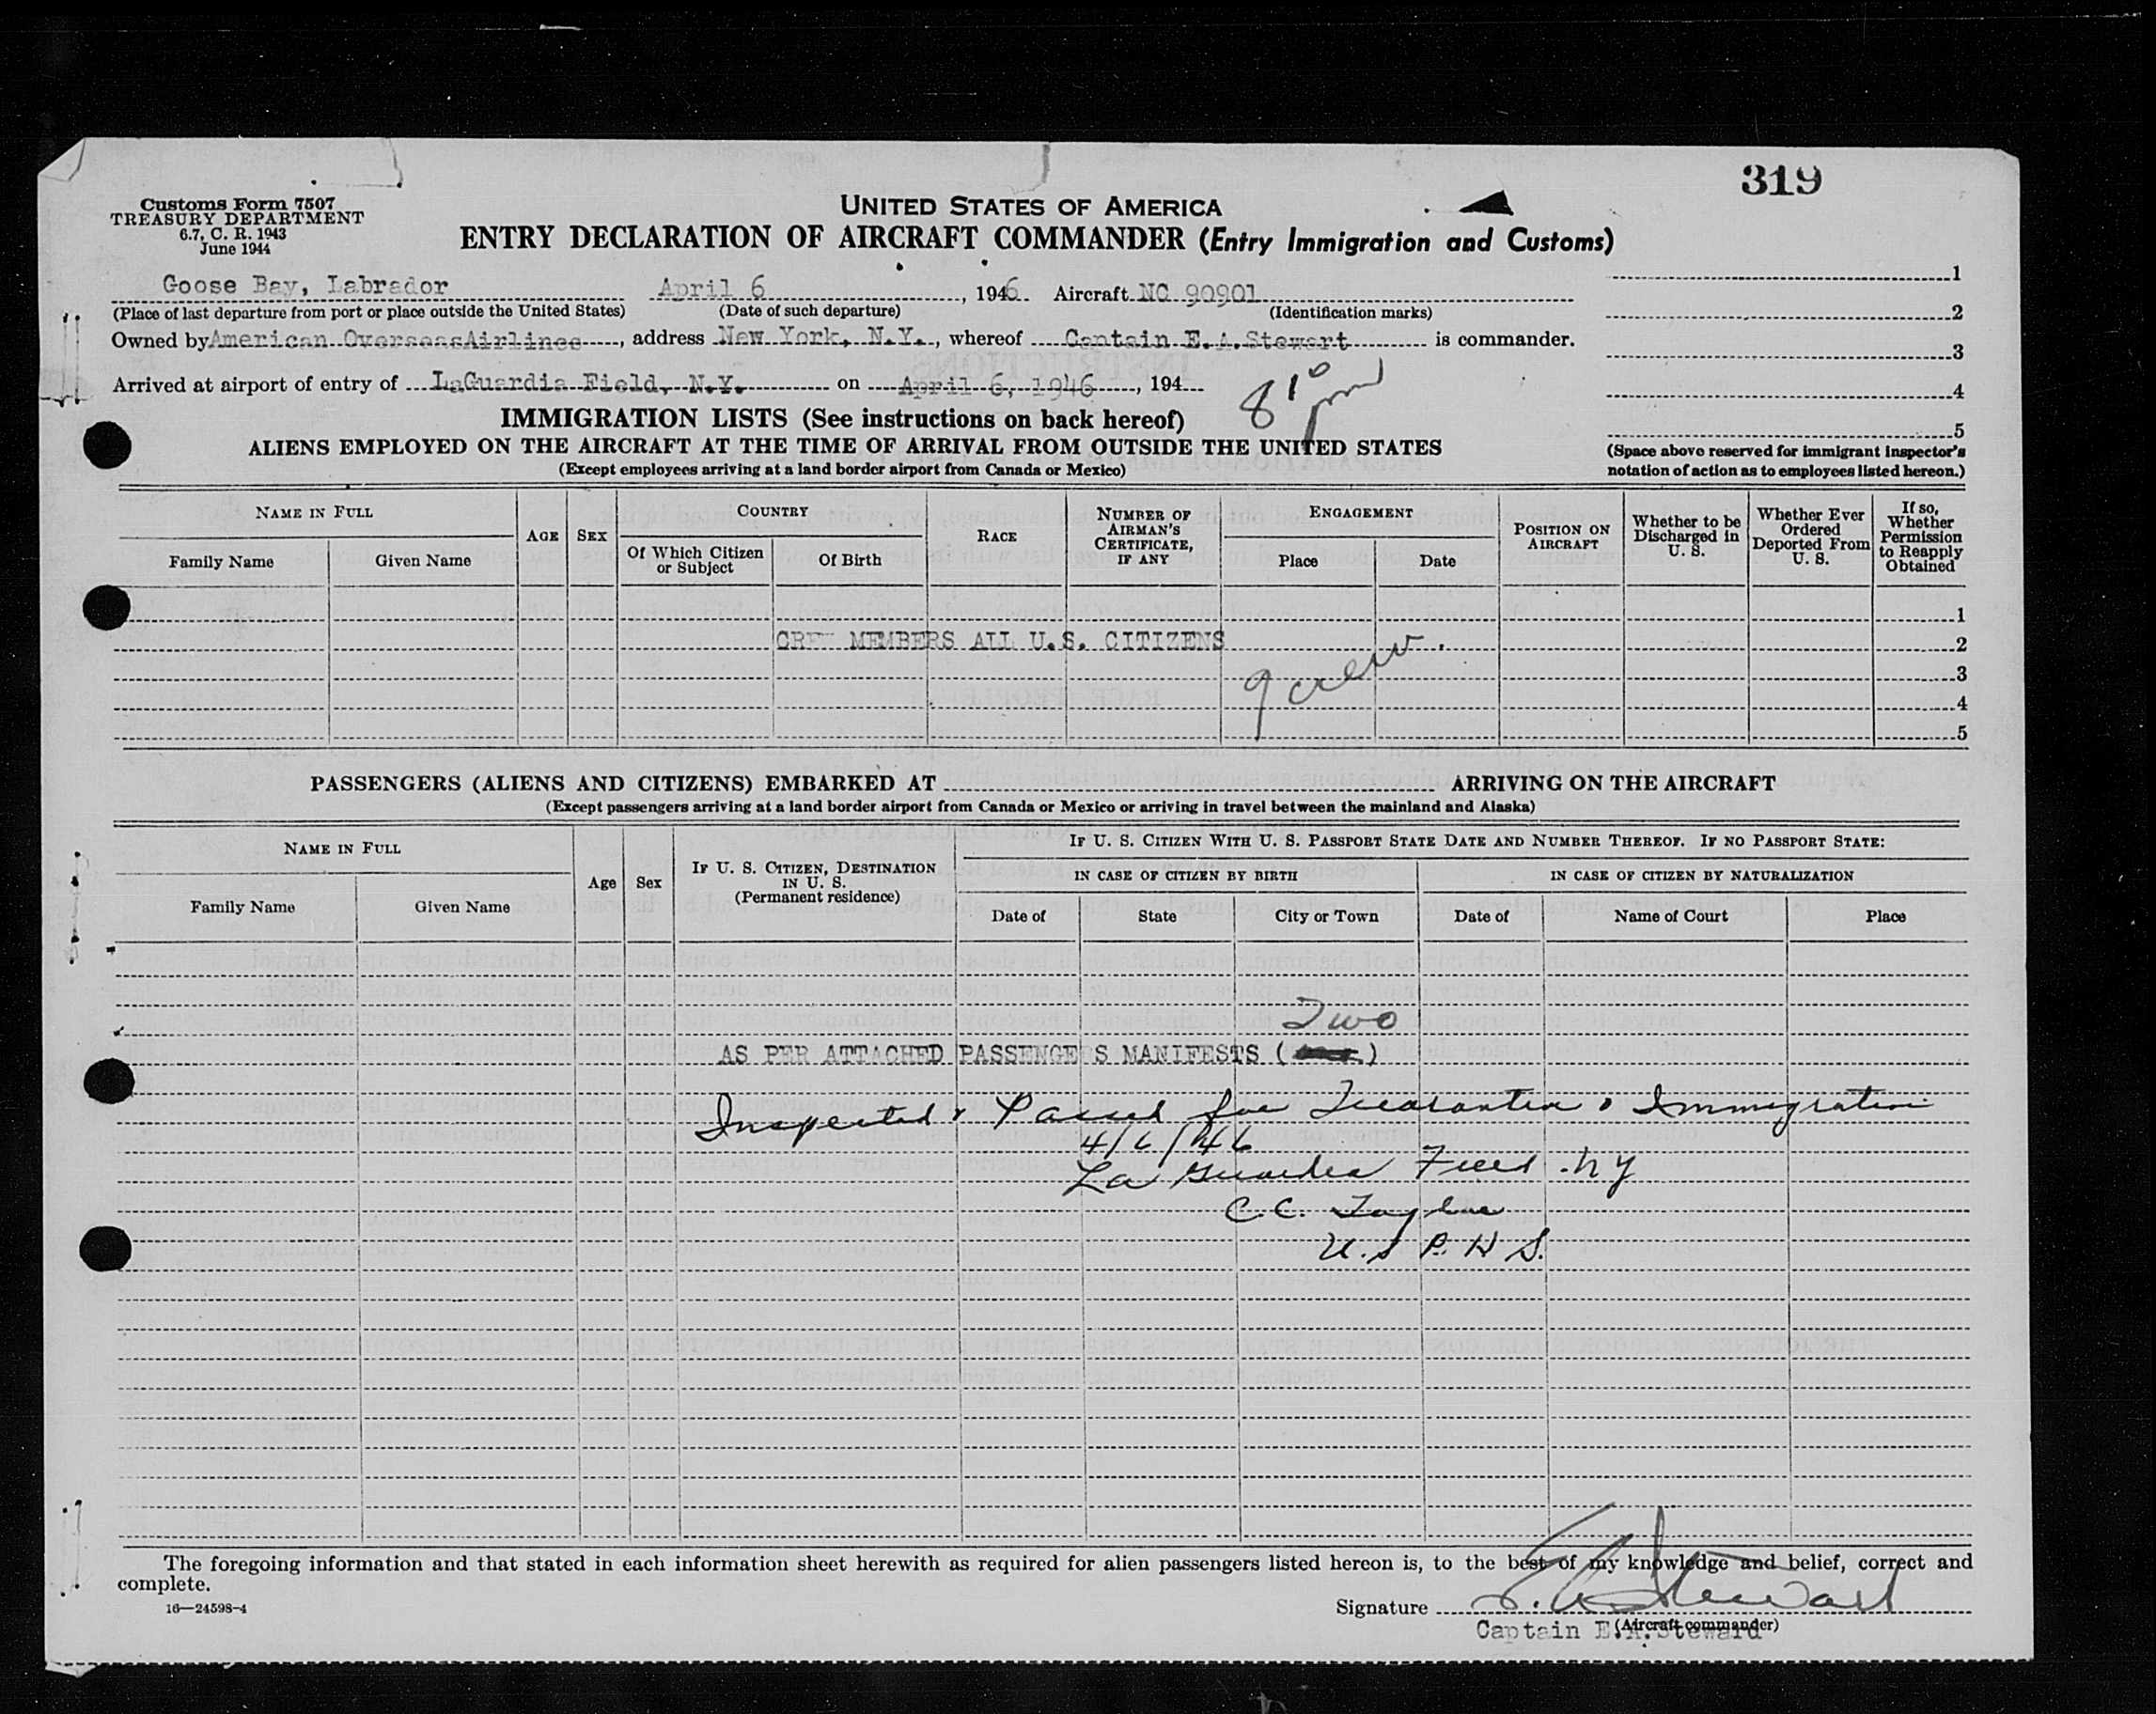 319
Customs Form 7507
TREASURY DEPARTMENT
6.7, C. R. 1943
June 1944
UNITED STATES OF AMERICA
ENTRY DECLARATION OF AIRCRAFT COMMANDER (Entry Immigration and Customs)
Goose Bay, Labrador April 6, 1946 Aircraft NC 90901
(Place of last departure from port or place outside the United States) (Date of such departure) (Identification marks)
Owned by American OverseasAirlines, address New York, N.Y., whereof Captain E.A.Stewart is commander.
Arrived at airport of entry of LaGuardia Field, N.Y. on April 6, 1946, 194
8 10 pm
1
2
3
4
5
(Space above reserved for immigrant inspector's
notation of action as to employees listed hereon.)
IMMIGRATION LISTS (See instructions on back hereof)
ALIENS EMPLOYED ON THE AIRCRAFT AT THE TIME OF ARRIVAL FROM OUTSIDE THE UNITED STATES
(Except employees arriving at a land border airport from Canada or Mexico)
NAME IN FULL
Family Name Given Name
AGE
SEX
COUNTRY
Of Which Citizen or Subject
Of Birth
RACE
NUMBER OF AIRMAN'S CERTIFICATE, IF ANY
ENGAGEMENT
Place Date
POSITION ON AIRCRAFT
Whether to be Discharged in U. S.
Whether Ever Ordered Deported From U. S.
If so, Whether Permission to Reapply Obtained
1
CREW MEMBERS ALL U.S. CITIZENS 2
9 crew.
3
4
5
PASSENGERS (ALIENS AND CITIZENS) EMBARKED AT ARRIVING ON THE AIRCRAFT
(Except passengers arriving at a land border airport from Canada or Mexico or arriving in travel between the mainland and Alaska)
NAME IN FULL
Family Name Given Name
Age
Sex
IF U. S. CITIZEN, DESTINATION IN U. S.
(Permanent residence)
IF U. S. CITIZEN WITH U. S. PASSPORT STATE DATE AND NUMBER THEREOF. IF NO PASSPORT STATE:
IN CASE OF CITIZEN BY BIRTH IN CASE OF CITIZEN BY NATURALIZATION
Date of State City or Town Date of Name of Court Place
Two
AS PER ATTACHED PASSENGERS MANIFESTS ( )
Inspected & Passed for Quarantine & Immigration
4/6/46
La Guardia Field. NY
C.C. Taylor
U.S P.H S.
The foregoing information and that stated in each information sheet herewith as required for alien passengers listed hereon is, to the best of my knowledge and belief, correct and
complete.
16—24598-4
Signature E.A. Stewart
(Aircraft commander)
Captain E.A.Steward